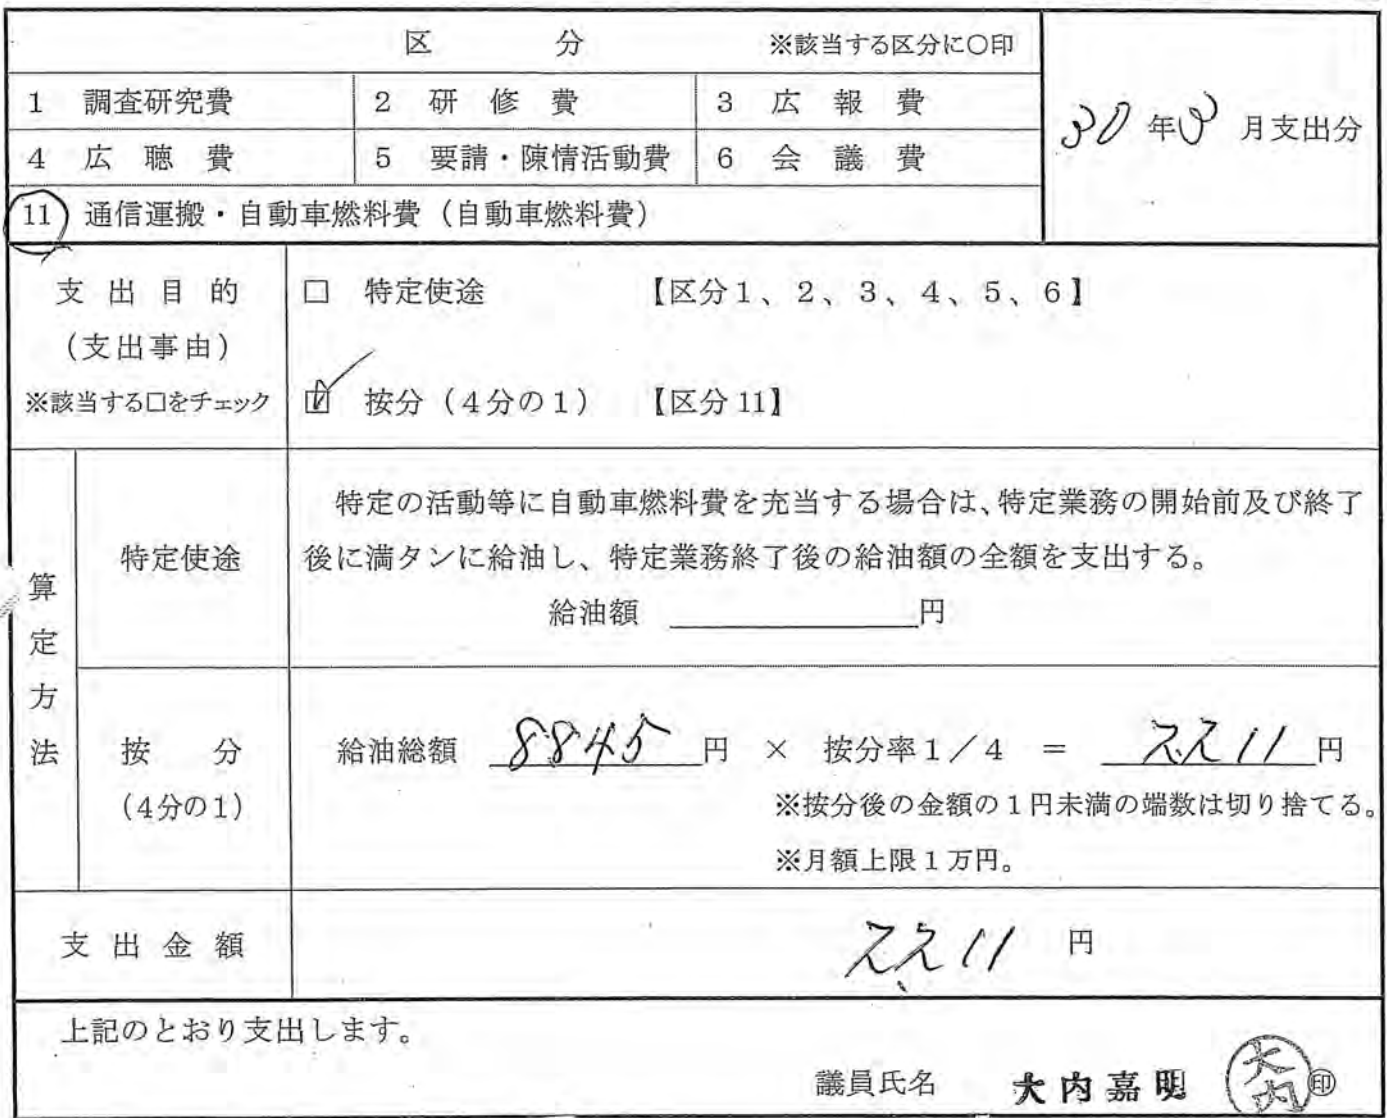 区　分　※該当する区分に○印
1　調査研究費　2　研修費　3　広報費
30年3月支出分
4　広聴費　5　要請・陳情活動費　6　会議費
11　通信運搬・自動車燃料費（自動車燃料費）
支出目的　□　特定使途　【区分1、2、3、4、5、6】
（支出事由）
※該当する□をチェック　☑　按分（4分の1）　【区分11】
算定方法
特定使途
特定の活動等に自動車燃料費を充当する場合は、特定業務の開始前及び終了
後に満タンに給油し、特定業務終了後の給油額の全額を支出する。
給油額　円
按分　給油総額　8845円　×　按分率1／4　＝　2211円
（4分の1）　※按分後の金額の1円未満の端数は切り捨てる。
※月額上限1万円。
支出金額　2211　円
上記のとおり支出します。
議員氏名　大内嘉明　大内　㊞